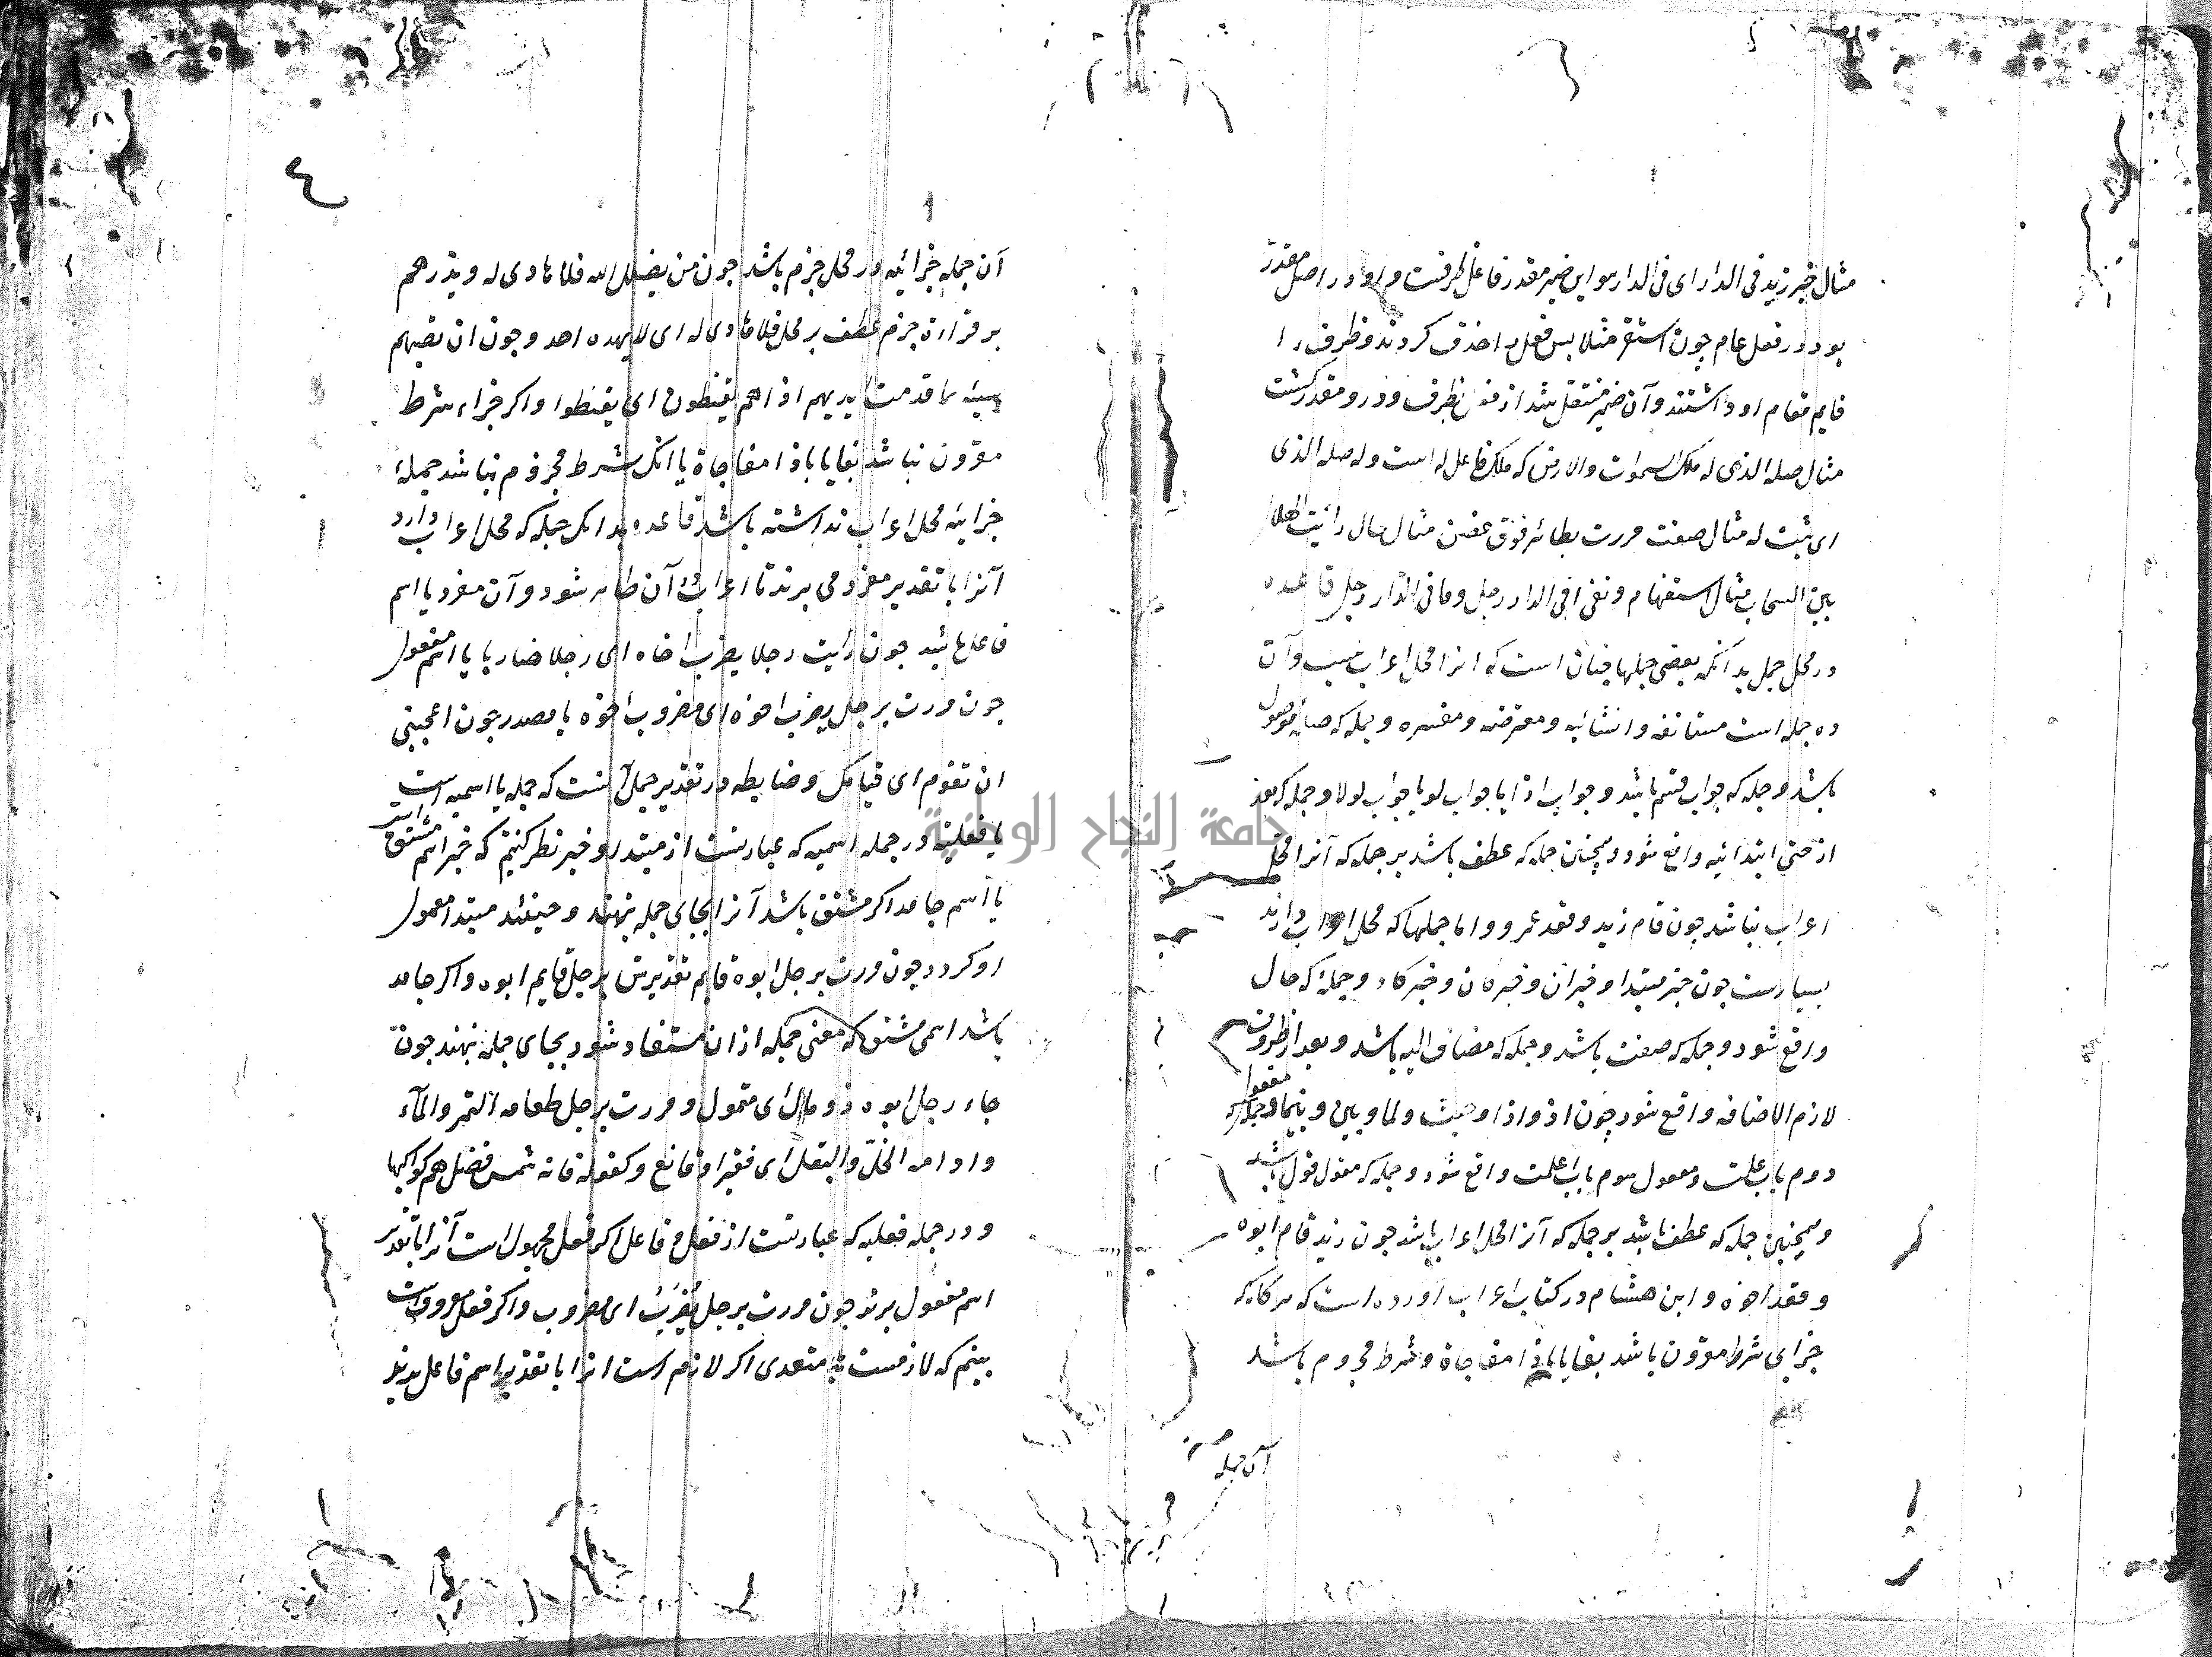 مثال خبر زید فی الدار ای فی الدار هو این ضمیر مقدر فاعل ظرفست و او در اصل مقدر
بود در فعل عام چون استقر مثلا پس فعل را حذف کردند و ظرف را
قایم مقام او داشتند و آن ضمیر منتقل شد از فعل بظرف و درو مقدر کشت
مثال صله الذی له ملک السموات والارض که ملک فاعل له است و له صله الذی
ای ثبت له مثال صفت مررت بطائر فوق غصن مثال حال رایت الهلال
بین السحاب مثال استفهام و نفی افی الدار رجل و ما فی الدار رجل قاعده
در محل جمل بدانکه بعضی جملها چنان است که انرا محل اعراب نیست و آن
ده جمله است مستانفه و انشائیه و معترضه و مفسره و جمله که صله موصول
باشد و جمله که جواب قسم باشد و جواب اذا یا جواب لو یا جواب لولا و جمله که بعد
از حتی ابتدائیه واقع شود و همچنین جمله که عطف باشد بر جمله که آنرا محل
اعراب نباشد چون قام زید و قعد عمرو و اما جملها که محل اعراب دارند
بسیارست چون خبر مبتدا و خبر ان و خبر کان و خبر کاد و جمله که حال
واقع شود و جمله که صفت باشد و جمله که مضاف الیه باشد و بعد از ظروف
لازم الاضافه واقع شود چون اذ و اذا و حیث و لما و بین و بینما و جمله که مفعول
دوم باب علمت و مفعول سوم باب اعلمت واقع شود و جمله که مقول قول باشد
و همچنین جمله که عطف باشد بر جمله که آنرا محل اعراب باشد چون زید قام ابوه
و قعد اخوه و ابن هشام در کتاب اعراب اورده است که هرکاه که
جزای شرط مقرون باشد بفا یا باذا مفاجاة و شرط مجزوم باشد
آن جمله
٤
آن جمله جزائیه در محل جزم باشد چون من یضلل الله فلا هادی له و یذرهم
بر قراءة جزم عطف بر محل فلا هادی له ای لا یهده احد و چون ان تصبهم
سیئة بما قدمت ایدیهم اذا هم یقنطون ای یقنطوا و اکر جزاء شرط
مقرون نباشد بفا یا باذا مفاجاة یا انک شرط مجزوم نباشد جملهٔ
جزائیه محل اعراب نداشته باشد قاعده بدانک جمله که محل اعراب دارد
آنرا با تقدیر مفرد می برند تا اعراب آن ظاهر شود و آن مفرد یا اسم
فاعل باشد چون رایت رجلا یضرب اخاه ای رجلا ضاربا یا اسم مفعول
چون مررت برجل یضرب اخوه ای مضروب اخوه یا مصدر چون اعجبنی
ان تقوم ای قیامک و ضابطه در تقدیر جمل آنست که جمله یا اسمیه است
یا فعلیه در جمله اسمیه که عبارتست از مبتدا و خبر نظر کنیم که خبر اسم مشتق است
یا اسم جامد اکر مشتق باشد آنرا بجای جمله نهند و حینئذ مبتدا معمول
او کردد چون مررت برجل ابوه قایم تقدیرش برجل قایم ابوه و اکر جامد
باشد اسمی مشتق که معنی جمله از ان مستفاد شود بجای جمله نهند چون
جاء رجل ابوه ذو مال ای متمول و مررت برجل طعامه التمر والمآء
و ادامه الخلّ والبقل ای فقیر او قانع و کقوله فانه شمس فضل هم کواکبها
و در جمله فعلیه که عبارتست از فعل و فاعل اکر فعل مجهول است آنرا با تقدیر
اسم مفعول برند چون مررت برجل یُضرَبُ ای مضروب و اکر فعل معروفست
بینم که لازمست یا متعدی اکر لازم است انرا با تقدیر اسم فاعل برند
جامعة النجاح الوطنية